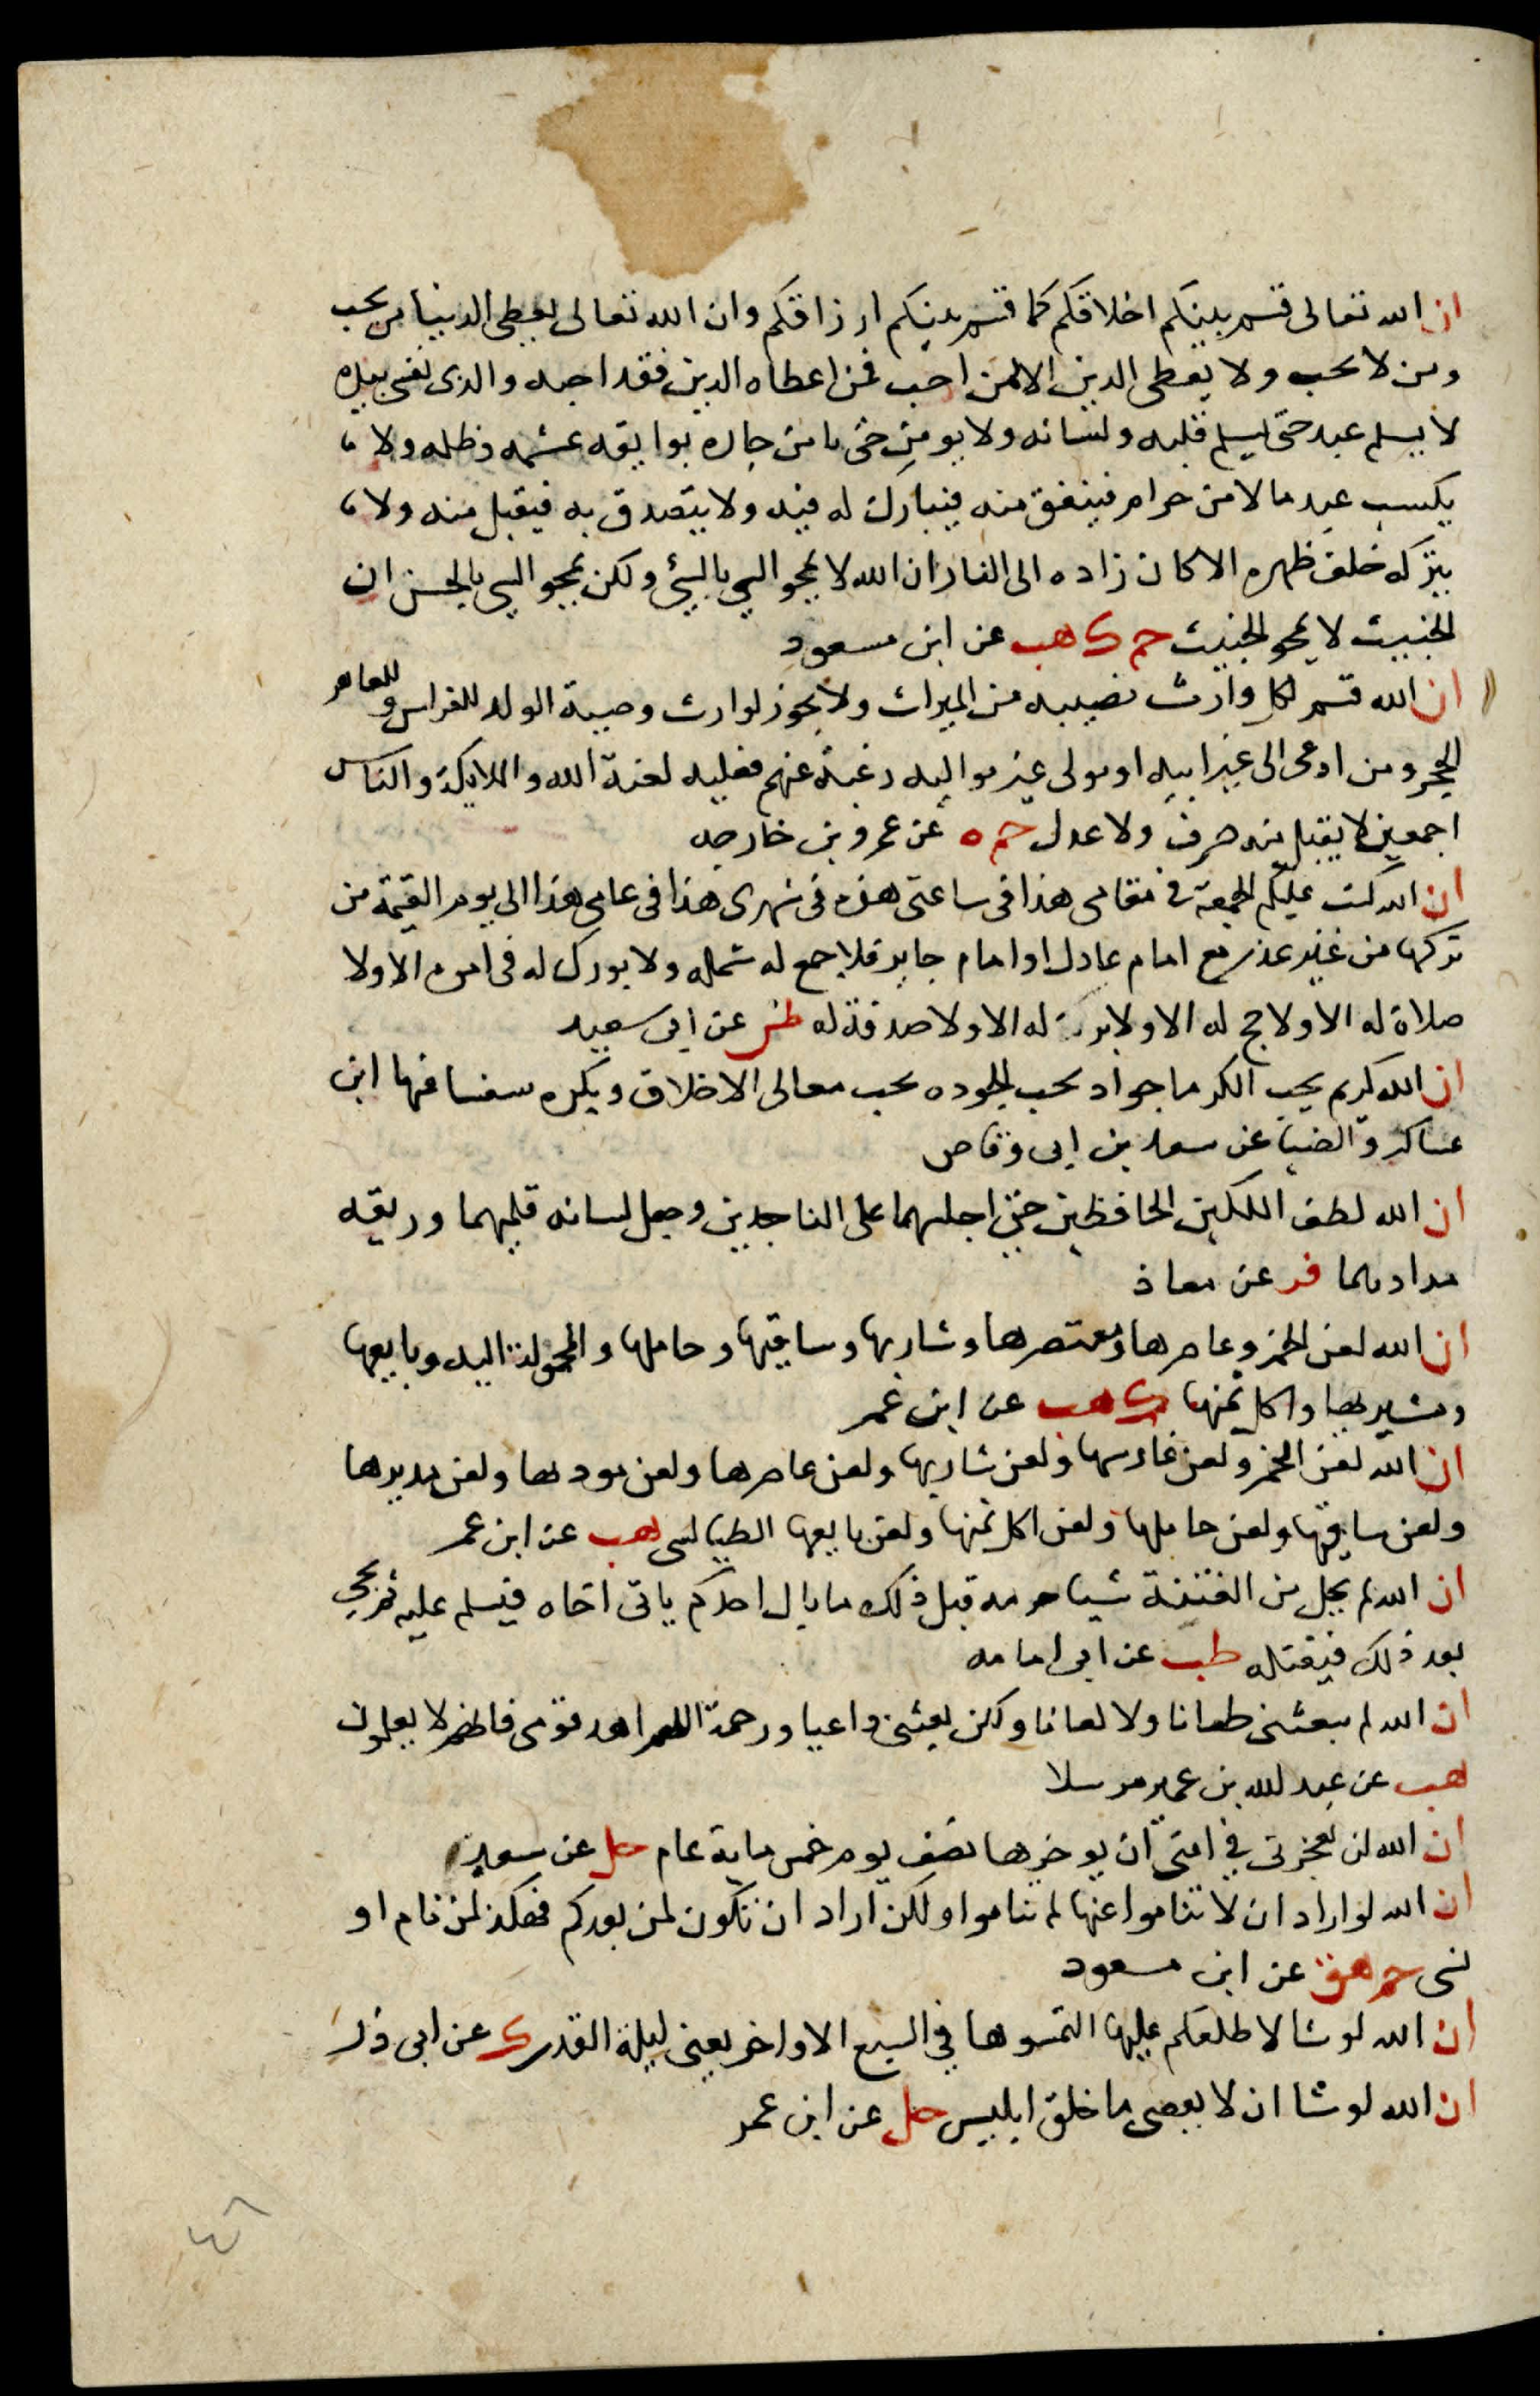 ان الله تعالى قسم بينكم اخلاقكم كما قسم بينكم ارزاقكم وان الله تعالى يعطى الدنيا من يحب
ومن لا يحب ولا يعطى الدين الا لمن احب فمن اعطاه الدين فقد احبه والذى نفسى بيده
لا يسلم عبد حتى يسلم قلبه ولسانه ولا يومن حتى يامن جاره بوايقه عشمه وظلمه ولا
يكسب عبد مالا من حرام فينفق منه فيبارك له فيه ولا يتصدق به فيقبل منه ولا
يتركه خلف ظهره الا كان زاده الى النار ان الله لا يمحو السي بالسيئ ولكن يمحو السي بالحسن ان
الخبيث لا يمحو الخبيث حم ك هب عن ابن مسعود
ان الله قسم لكل وارث نصيبه من الميراث ولا يجوز لوارث وصية الولد للفراش وللعاهر
الحجر ومن ادعى الى غير ابيه او تولى غير مواليه رغبة عنهم فعليه لعنة الله والملايكة والناس
اجمعين لا يقبل منه صرف ولا عدل حم ه عن عمرو بن خارجه
ان الله كتب عليكم الجمعة في مقامى هذا فى ساعتى هذه فى شهرى هذا فى عامى هذا الى يوم القيمة من
تركها من غير عذر مع امام عادل او امام جاير فلا جمع له شمله ولا بورك له فى امره الا ولا
صلاة له الا ولا حج له الا ولا بركة له الا ولا صدقة له طس عن ابى سعيد
ان الله كريم يحب الكرما جواد يحب الجوده يحب معالى الاخلاق ويكره سفسافها ابن
عساكر والضيا عن سعد بن ابى وقاص
ان الله لطف الملكين الحافظين حتى اجلسهما على الناجدين وجعل لسانه قلمهما وريقه
مدادهما فر عن معاذ
ان الله لعن الخمر وعاصرها ومعتصرها وشاربها وساقيها وحاملها والمحمولة اليه وبايعها
ومشتريها واكل ثمنها ك هب عن ابن عمر
ان الله لعن الخمر ولعن غارسها ولعن شاربها ولعن عاصرها ولعن موديها ولعن مديرها
ولعن ساقيها ولعن حاملها ولعن اكل ثمنها ولعن بايعها الطيالسى هب عن ابن عمر
ان الله لم يحل من الفتنة شيا حرمه قبل ذلك ما بال احدكم ياتى اخاه فيسلم عليه ثم يجى
بعد ذلك فيقتله طب عن ابى امامه
ان الله لم يبعثنى طعانا ولا لعانا ولكن بعثنى داعيا ورحمة اللهم اهد قومى فانهم لا يعلمون
هب عن عبد الله بن عمير مرسلا
ان الله لن يعجزنى في امتى ان يوخرها نصف يوم خمس ماية عام حل عن سعيد
ان الله لو اراد ان لا تناموا عنها لم تناموا ولكن اراد ان تكون لمن بعدكم فهكذا لمن نام او
نسى حم هق عن ابن مسعود
ان الله لو شا لاطلعكم عليها التمسوها في السبع الاواخر يعنى ليلة القدر ك عن ابى ذر
ان الله لو شا ان لا يعصى ما خلق ابليس حل عن ابن عمر